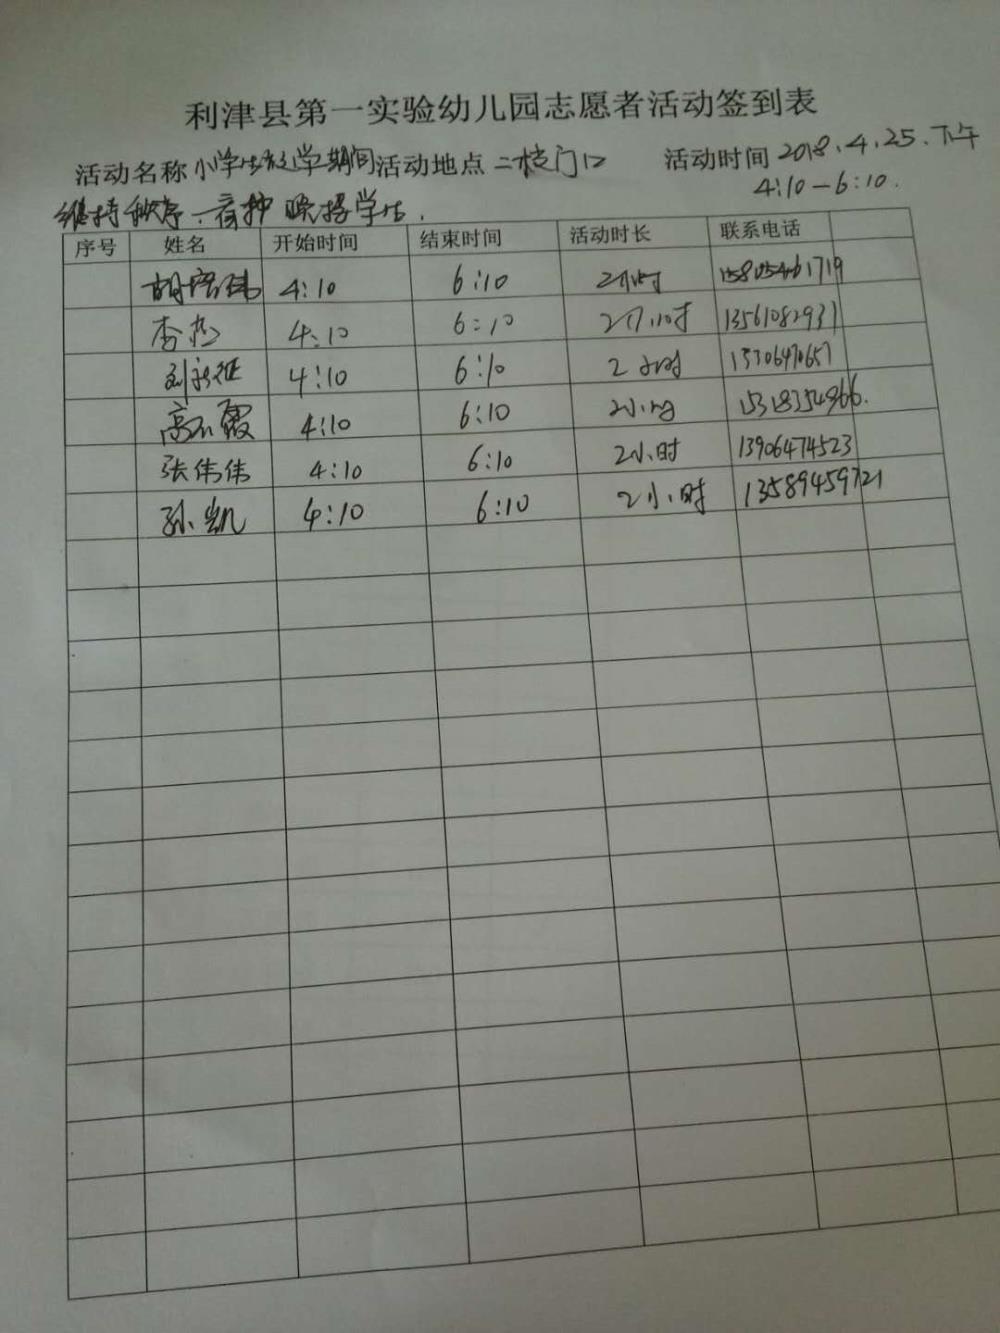 利津县第一实验幼儿园志愿者活动签到表
活动名称 小学生放学期间 活动地点 二校门口 活动时间 2018.4.25.下午
4:10-6:10.
维持秩序.看护 晚接学生.
序号 姓名 开始时间 结束时间 活动时长 联系电话
4:10 6:10 2小时 15805461719
4:10 6:10 2个小时 13561082931
4:10 6:10 2小时
高 霞 4:10 6:10 2小时 15318354966.
张伟伟 4:10 6:10 2小时 13906474523
孙凯 4:10 6:10 2小时 13589459721